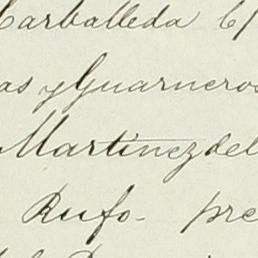 Carballeda
as y Guarneros
Martinez del
Rufo- pre